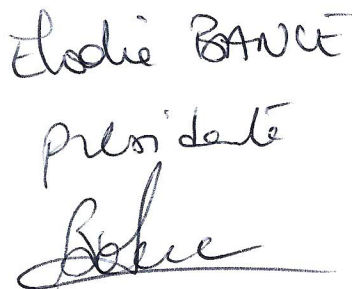 Elodie BANCE
présidente